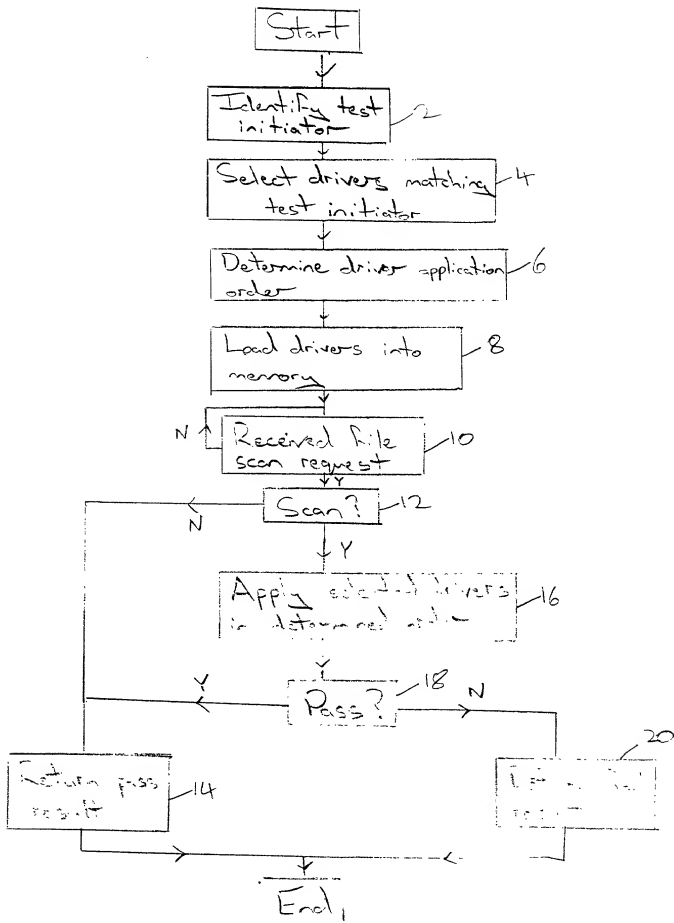 Start
Identify test
initiator
2
Select drivers matching
test initiator
4
Determine driver application
order
6
Load drivers into
memory
8
N
Received file
scan request
10
Y
Scan?
12
N
Y
Apply selected drivers
in determined order
16
Y
Y
Pass?
18
N
Return pass
result
14
20
result
End